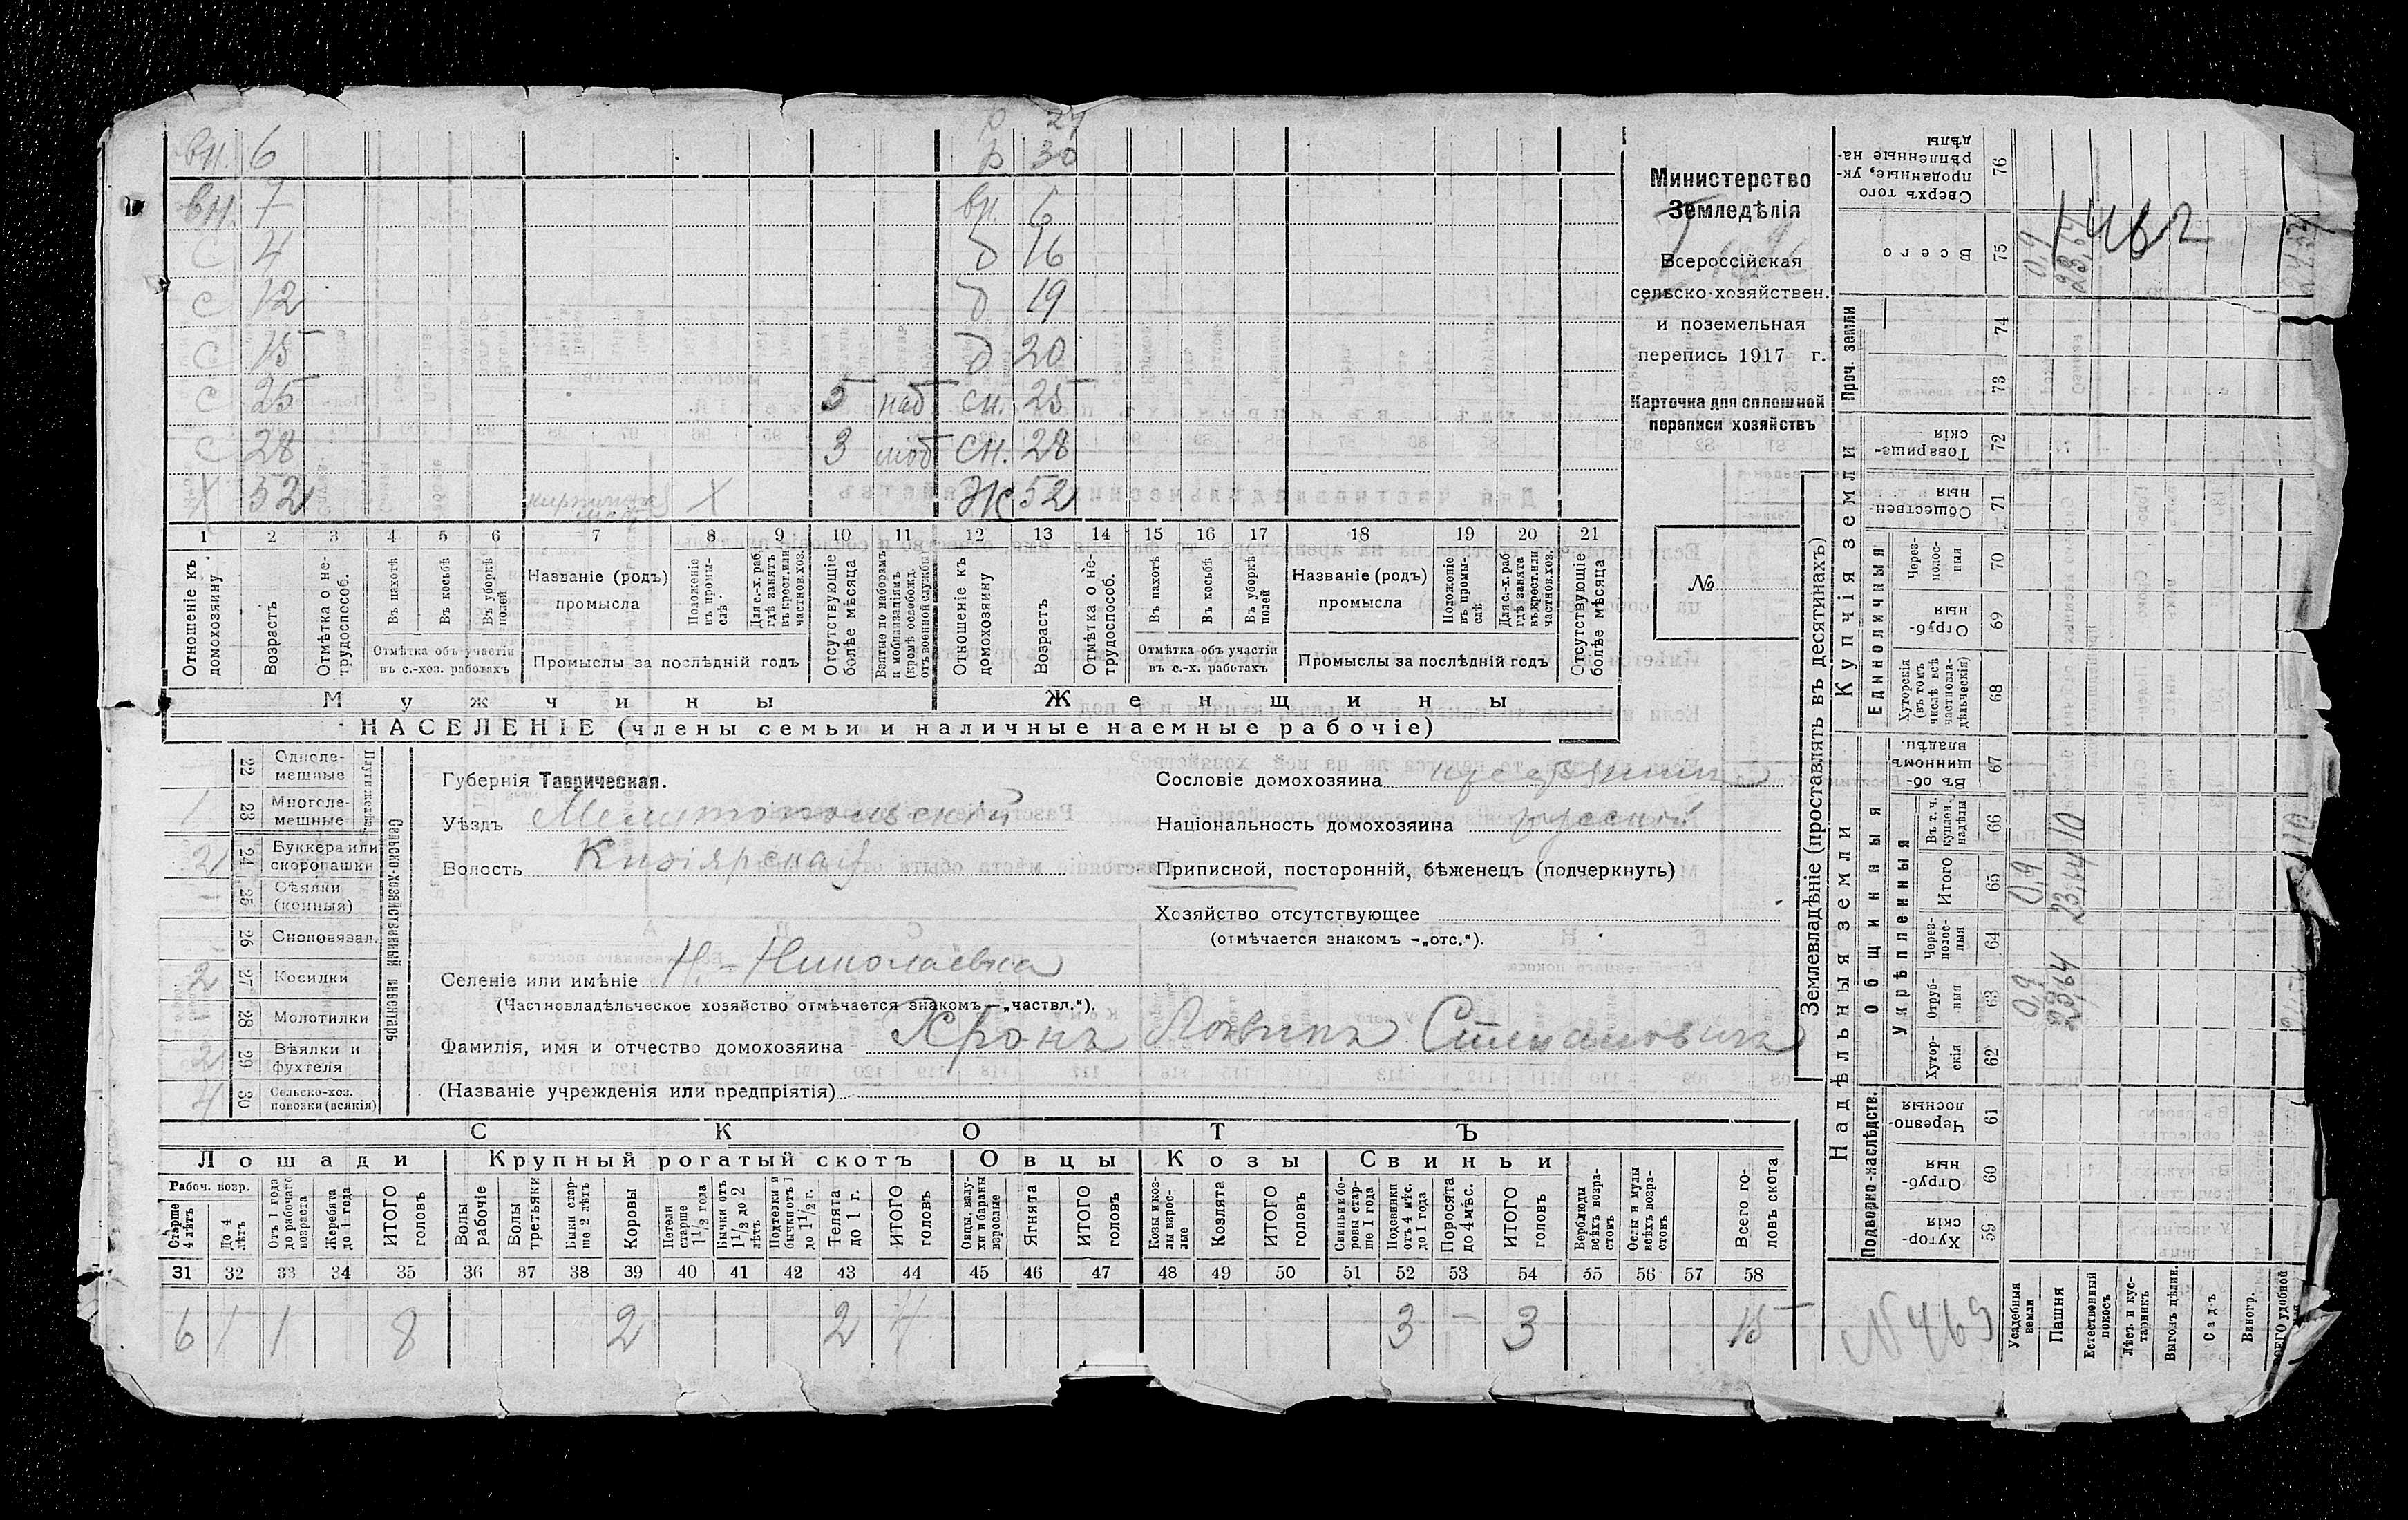 р 27
вн. 6 р 30
вн. 7 вн. 6
с 4 д 16
с 12 д 19
с 15 д 20
с 25 5 наб сн. 25
с 28 3 моб сн. 28
х 52 Х Ж 52
1 2 3 4 5 6 7 8 9 10 11 12 13 14 15 16 17 18 19 20 21
Отношеніе къ домохозяину.
Возрастъ
Отмѣтка о нетрудоспособ.
Въ пахотѣ
Въ косьбѣ
Въ уборкѣ полей
Отмѣтка объ участіи
въ с.-хоз. работахъ
Названіе (родъ)
промысла
Положеніе въ промыслѣ
Для с.-х. раб. гдѣ занятъ въ крест. или частнов. хоз.
Промыслы за послѣдній годъ
Отсутствующіе болѣе мѣсяца
Взятые по наборамъ и мобилизаціямъ (кромѣ освобожд. отъ военной службы)
Отношеніе къ домохозяину
Возрастъ
Отмѣтка о нетрудоспособ.
Въ пахотѣ
Въ косьбѣ
Въ уборкѣ полей
Отмѣтка объ участіи
въ с.-х. работахъ
Названіе (родъ)
промысла
Положеніе въ промыслѣ
Для с.-х. раб. гдѣ занята въ крест. или частнов. хоз.
Промыслы за послѣдній годъ
Отсутствующіе болѣе мѣсяца
Мужчины Женщины
НАСЕЛЕНІЕ (члены семьи и наличные наемные рабочіе)
Министерство
Земледѣлія
Всероссійская
сельско-хозяйствен.
и поземельная
перепись 1917 г.
Карточка для сплошной
переписи хозяйствъ
№
Сельско-хозяйственный инвентарь
22 Одноле-
мешные
1 23 Многоле-
мешные
2 24 Буккера или
скоропашки
1 25 Сѣялки
(конныя)
26 Сноповязал.
2 27 Косилки
1 28 Молотилки
2 29 Вѣялки и
фухтеля
4 30 Сельско-хоз.
повозки (всякія)
Губернія Таврическая.
Уѣздъ Мелитопольскій
Волость Кизіярская
Селеніе или имѣніе Н.-Николаевка
(Частновладѣльческое хозяйство отмѣчается знакомъ—„частвл.“).
Фамилія, имя и отчество домохозяина Хронъ Логвинъ Степановичъ
(Названіе учрежденія или предпріятія)
Сословіе домохозяина крестьянинъ
Національность домохозяина русскій
Приписной, посторонній, бѣженецъ (подчеркнуть)
Хозяйство отсутствующее
(отмѣчается знакомъ —„отс.“).
СКОТЪ
Лошади Крупный рогатый скотъ Овцы Козы Свиньи
Рабоч. возр.
Старше 4 лѣтъ
До 4 лѣтъ
Отъ 1 года до рабочаго возраста
Жеребята до 1 года
ИТОГО головъ
Волы рабочіе
Волы третьяки
Быки старше 2 лѣтъ
Коровы
Нетели старше 1½ года
Бычки отъ 1½ до 2 лѣтъ
Подтелки и бычки отъ 1 до 1½ г.
Телята до 1 г.
ИТОГО головъ
Овцы, валухи и бараны взрослые
Ягнята
ИТОГО головъ
Козы и козлы взрослые
Козлята
ИТОГО головъ
Свиньи и боровы старше 1 года
Подсвинки отъ 4 мѣс. до 1 года
Поросята до 4 мѣс.
ИТОГО головъ
Верблюды всѣхъ возрастовъ
Ослы и мулы всѣхъ возрастовъ
Всего головъ скота
31 32 33 34 35 36 37 38 39 40 41 42 43 44 45 46 47 48 49 50 51 52 53 54 55 56 57 58
6 1 1 8 2 2 4 3 – 3 15
Землевладѣніе (проставлять въ десятинахъ)
Купчія земли
Надѣльныя земли
Сверхъ того проданные, укрѣпленные надѣлы 76
Всего 75 0,9 23,64
1462
Проч. земли
74
73
Товарищескія 72
Общественныя 71
Единоличныя
Черезполосныя 70
Отрубныя 69
Хуторскія (въ томъ числѣ всѣ частновладѣльческія) 68
Общинныя
Въ общинномъ владѣн. 67
Укрѣпленныя
Въ т. ч. куплен. надѣлы 66 10
Итого 65 0,9 23,64
Черезполосныя 64
Отрубныя 63 0,9 23,64
Хуторскія 62
Подворно-наслѣдств.
Черезполосныя 61
Отрубныя 60
Хуторскія 59
Усадебныя земли
Пашня
Естественный покосъ
Лѣсъ и кустарникъ
Выгонъ цѣлин.
Садъ
Виногр.
№ 469